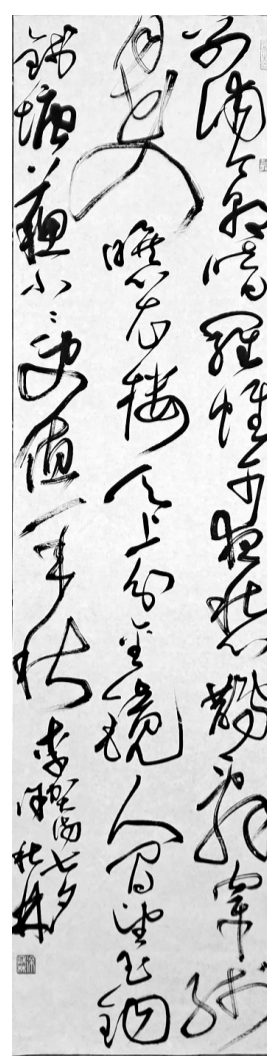 別浦今朝暗羅帷午夜愁鵲辭穿綫
月花入曝衣樓天上分金鏡人間望玉鈎
錢塘蘇小〻更值一年秋
李賀詩七夕
秋林